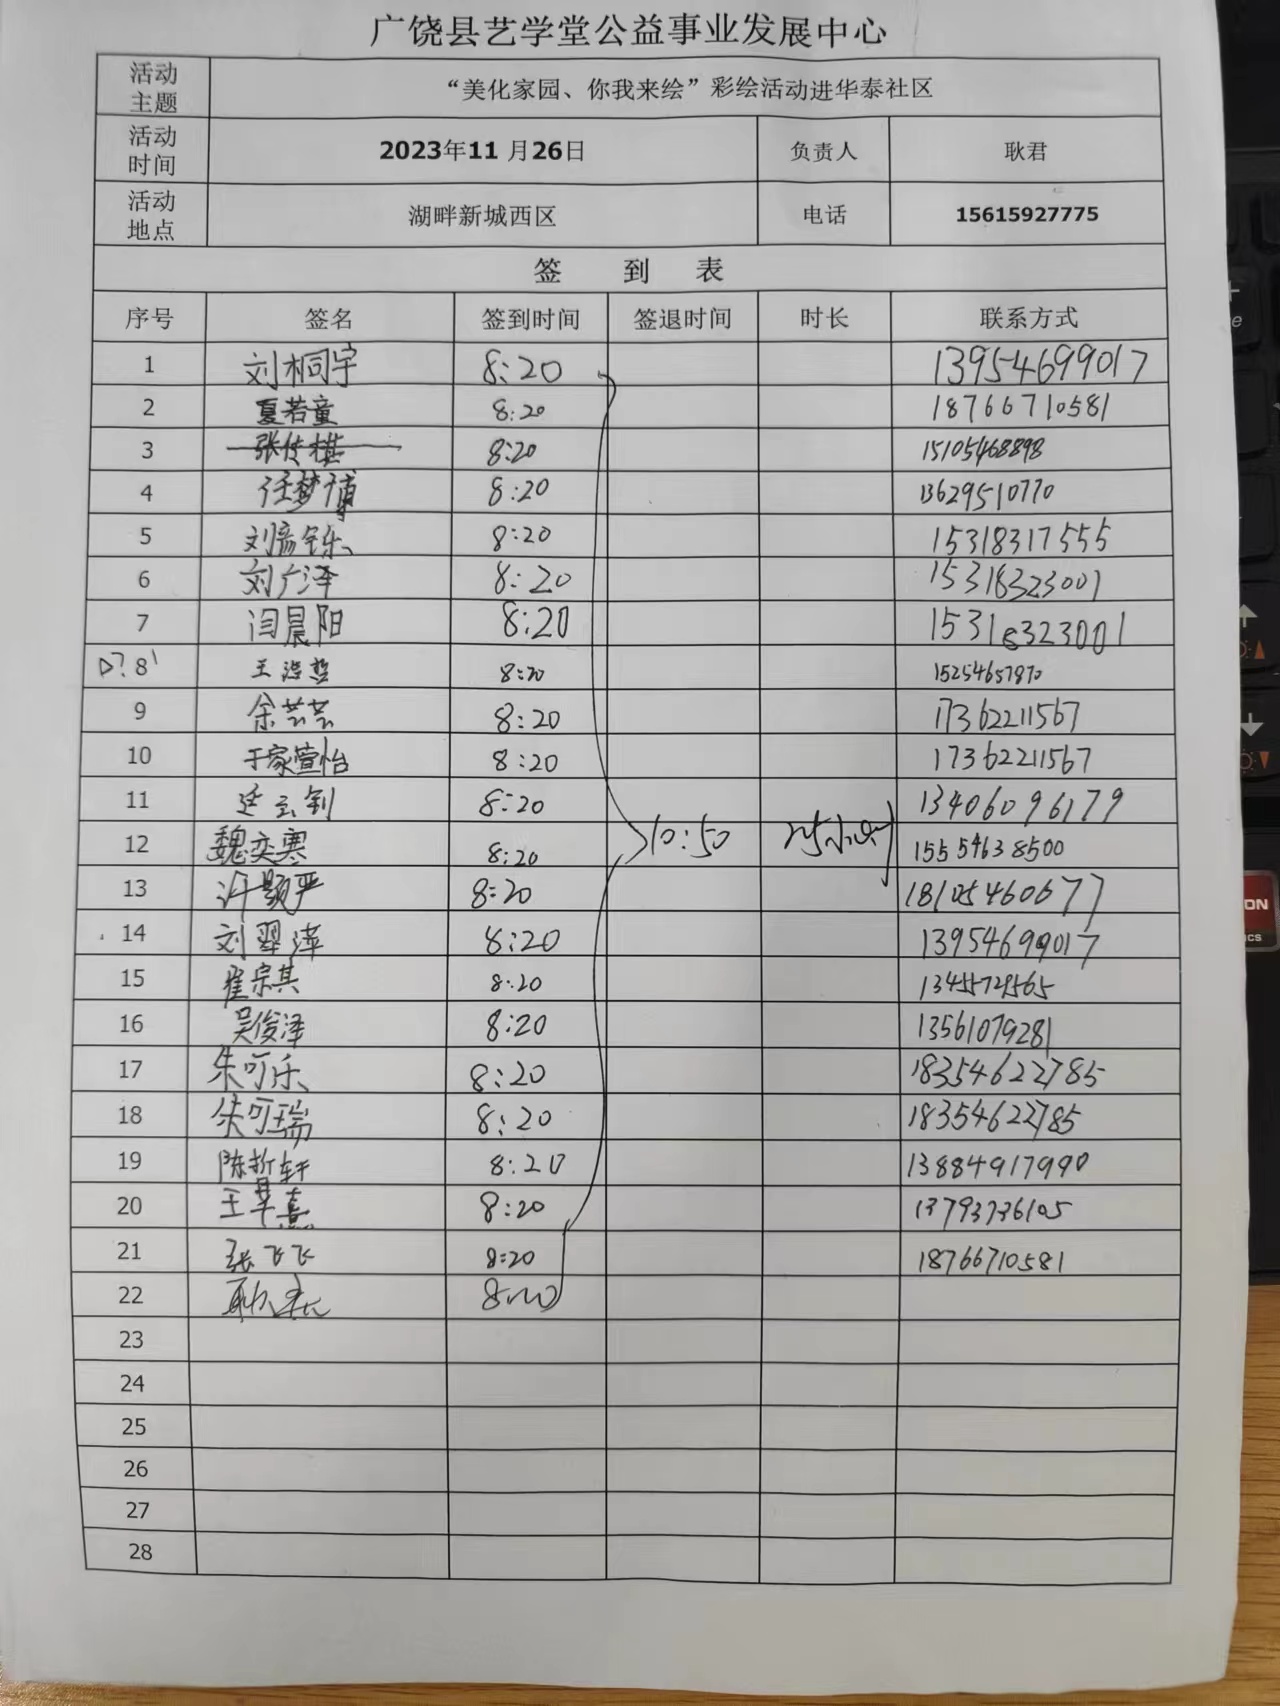 广饶县艺学堂公益事业发展中心
活动主题 “美化家园、你我来绘”彩绘活动进华泰社区
活动时间 2023年11月26日 负责人 耿君
活动地点 湖畔新城西区 电话 15615927775
签 到 表
序号 签名 签到时间 签退时间 时长 联系方式
1 刘桐宇 8:20 13954699017
2 夏若童 8:20 18766710581
3 张传棋 8:20 15105468898
4 任梦傎 8:20 13629510770
5 刘彦铄 8:20 15318317555
6 刘广泽 8:20 15318323001
7 闫晨阳 8:20 15318323001
8 王浩哲 8:20 15254657870
9 余芸芸 8:20 17362211567
10 于家萱怡 8:20 17362211567
11 延云钊 8:20 13406096179
12 魏奕寒 8:20 10:50 2.5小时 15554638500
13 许颢严 8:20 18105460677
14 刘翠萍 8:20 13954699017
15 崔宗其 8:20
16 吴俊泽 8:20 13561079281
17 朱可乐 8:20 18354622785
18 朱可瑞 8:20 18354622785
19 陈折轩 8:20 13884917990
20 王 熹 8:20 13793736105
21 张飞飞 8:20 18766710581
22 耿 8:20
23
24
25
26
27
28